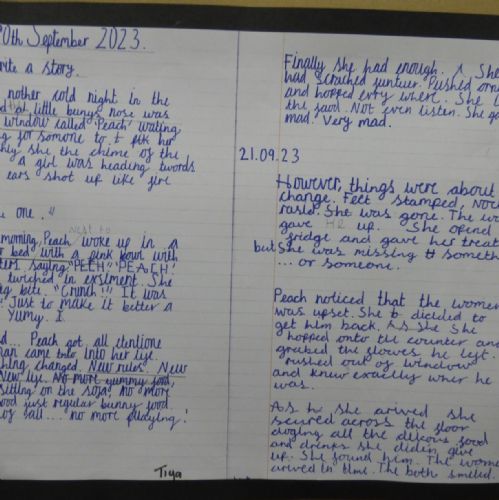 0th September 2023.
rite a story.
nother cold night in the
little bunys nose was
window called Peach waiting
g for somone to pik her
she the chime of the
a girl was heading twords
ears shot up like fire
e one."
next to
morning, Peach woke up in a
bed with a pink bowl with
ters saying "PECH" "PEACH"
twiched in exsiment. She
bite. "Crunch"! It was
Just to make it better a
Yumy. I.
d... Peach got all
man came into into her life.
hing changed. New rules. New
New life. No more yummy food,
sitting on the sofa. No more
ood just regular bunny food.
of all... no more playing!
Tiya
Finally she had enough. A She
had scrached Pushed
and hopped evry where. She
the Not even listen. She
mad. Very mad.
21.09.23
However, things were about
change. Feet stamped,
She was gone. The wo
gave up. She opend
fridge and gave her treat
but She was missing someth
... or someone.
Peach noticed that the women
was upset. She dicided to
get him back. As she She
hopped onto the counter and
grabed the he left.
rushed out of window
and knew exactly wher he
was.
As she arived she
scured across the floor
doging all the food
and drinks she diden give
up. She found him. The women
arived in time. The both smiled